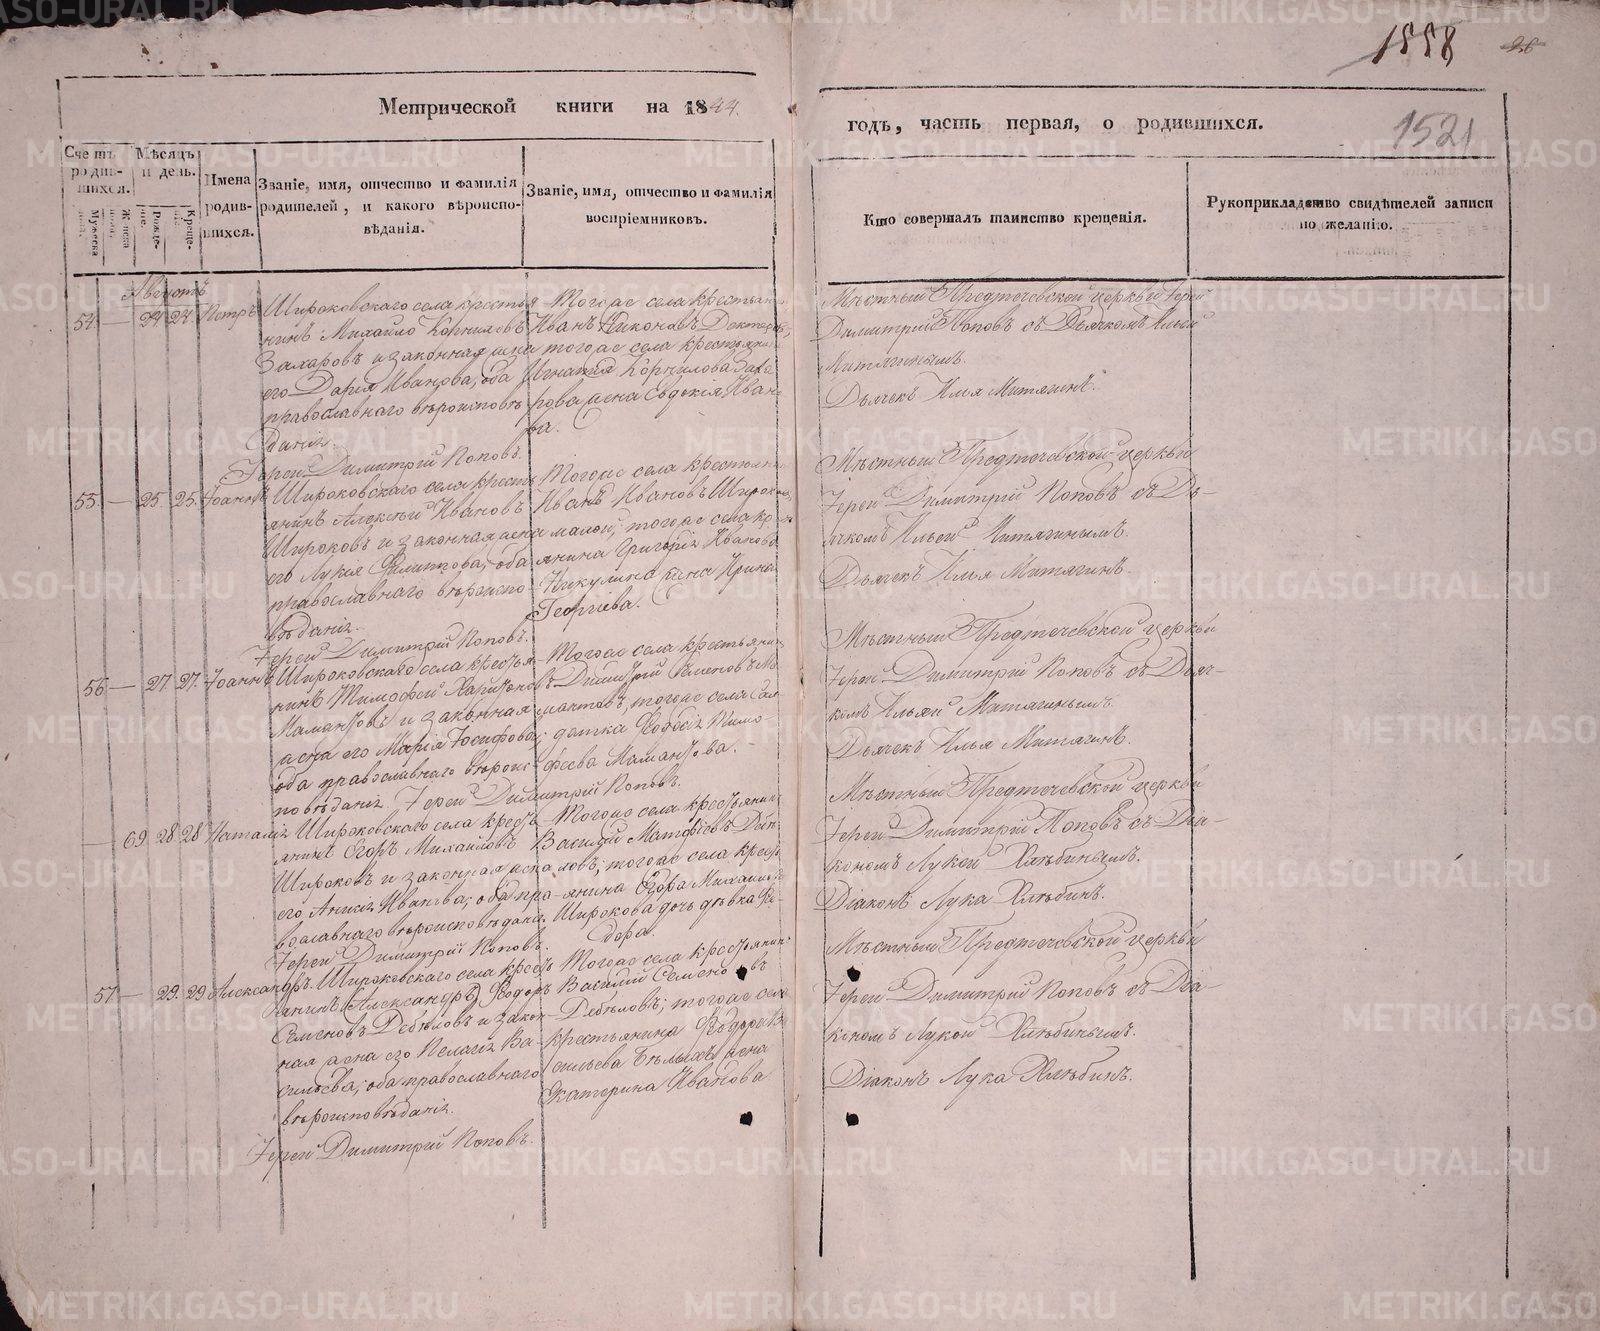 1558
26
Метрической книги на 1844.
годъ, часть первая, о родившихся.
1521
Счетъ родившихся.
Мѣсяцъ и день.
Мужеска
Женска
Рожденіе.
Крещеніе.
Имена родившихся.
Званіе, имя, отчество и фамилія родителей, и какого вѣроисповѣданія.
Званіе, имя, отчество и фамилія воспріемниковъ.
Кто совершалъ таинство крещенія.
Рукоприкладство свидѣтелей записи по желанію.
Августъ
54. — 24 24. Петръ
Широковскаго села крестья
нинъ Михайло Корниловъ
Захаровъ и законная жена
его Дарья Иванова, оба
православнаго вѣроисповѣ
данія.
Іерей Димитрій Поповъ.
Тогоже села крестьян
Иванъ Никоновъ
тогоже села крестьяни
Игнатія Корнилова Заха
рова жена Евдокія Ивано
ва.
Мѣстный Предтечевской церкви Іерей
Димитрій Поповъ съ Дьячкомъ Ильей
Митягинымъ.
Дьячекъ Илья Митягинъ.
55. — 25 25. Іоаннъ
Широковскаго села кресть
янинъ Алексѣй Ивановъ
Широковъ и законная жена
его Лукія Филиппова, оба
православнаго вѣроиспо
вѣданія.
Іерей Димитрій Поповъ.
Тогоже села крестьянин
Иванъ Ивановъ Широков
малой, тогоже села кр
янина Григорія Иванова
Никулина жена Ирина
Георгіева.
Мѣстный Предтечевской церкви
Іерей Димитрій Поповъ съ Дь-
ячкомъ Ильей Митягинымъ.
Дьячекъ Илья Митягинъ.
56 — 27 27. Іоаннъ
Широковскаго села крестья
нинъ Тимофей Харитоновъ
Мамантовъ и законная
жена его Марія Іосифова;
оба православнаго вѣроис
повѣданія. Іерей Димитрій Поповъ.
Тогоже села крестьянин
Димитрій Семеновъ Ма
мантовъ, тогоже села сол
датка Федосія Тимо
феева Мамантова.
Мѣстный Предтечевской церкви
Іерей Димитрій Поповъ съ Дьяч-
комъ Ильей Митягинымъ.
Дьячекъ Илья Митягинъ.
— 69 28 28 Наталія
Широковскаго села кресть
янинъ Егоръ Михайловъ
Широковъ и законная жена
его Анисія Иванова; оба пра
вославнаго вѣроисповѣданія.
Іерей Димитрій Поповъ.
Тогоже села крестьянин
Василій Матфіевъ Дебе
ловъ; тогоже села кресть
янина Егора Михайлова
Широкова дочь дѣвка Фе
дора.
Мѣстный Предтечевской церкви
Іерей Димитрій Поповъ съ Діа-
кономъ Лукой Хлѣбинымъ.
Діаконъ Лука Хлѣбинъ.
57 — 29. 29 Александръ.
Широковскаго села кресть
янинъ (Александръ) Федоръ
Семеновъ Дебѣловъ и закон-
ная жена его Пелагія Ва-
сильева, оба православнаго
вѣроисповѣданія.
Іерей Димитрій Поповъ.
Тогоже села крестьянин
Василій Семеновъ
Дебѣловъ; тогоже села
крестьянина Федора Ва
сильева Бѣлыхъ жена
Екатерина Иванова
Мѣстный Предтечевской церкви
Іерей Димитрій Поповъ съ Діа-
кономъ Лукой Хлѣбинымъ.
Діаконъ Лука Хлѣбинъ.
METRIKI.GASO-URAL.RU